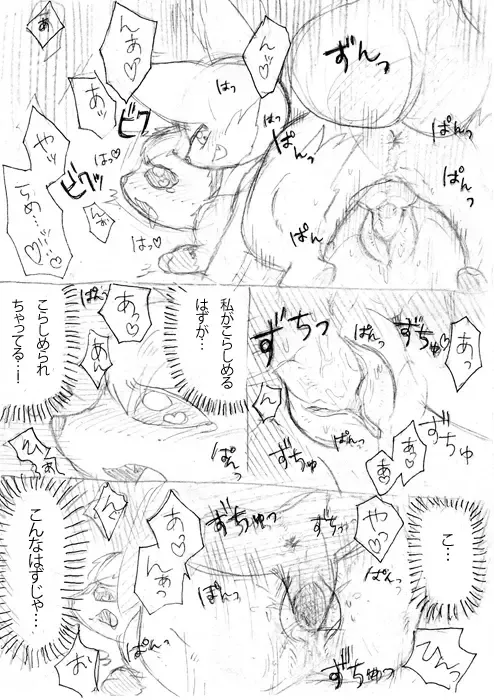 ずんっ
んっ♡
んあっ♡
あ
ぱんっ
ぱんっ
ぱん
はっ
はっ
ビク
あッ
はっ♡
ビクッ
やッ
らめ…ッ…♡
んあ
はっ♡
あっ
ずちゅ♡
ぱんっ
ずちっ
ずちゅ
あっ♡
あっ
ん
ぱんっ
ずちゅ
私がこらしめる
はずが…
あっ♡
ぱんっ
あん
こらしめられ
ちゃってる…！
ぱんっ
こ…
やっ♡
ずちゅっ
ずちゅっ
ぱんっ
ひんっ
ずちゅっ
あっ♡
ん
あっ♡
ぱんっ
ぱんっ
こんなはずじゃ…